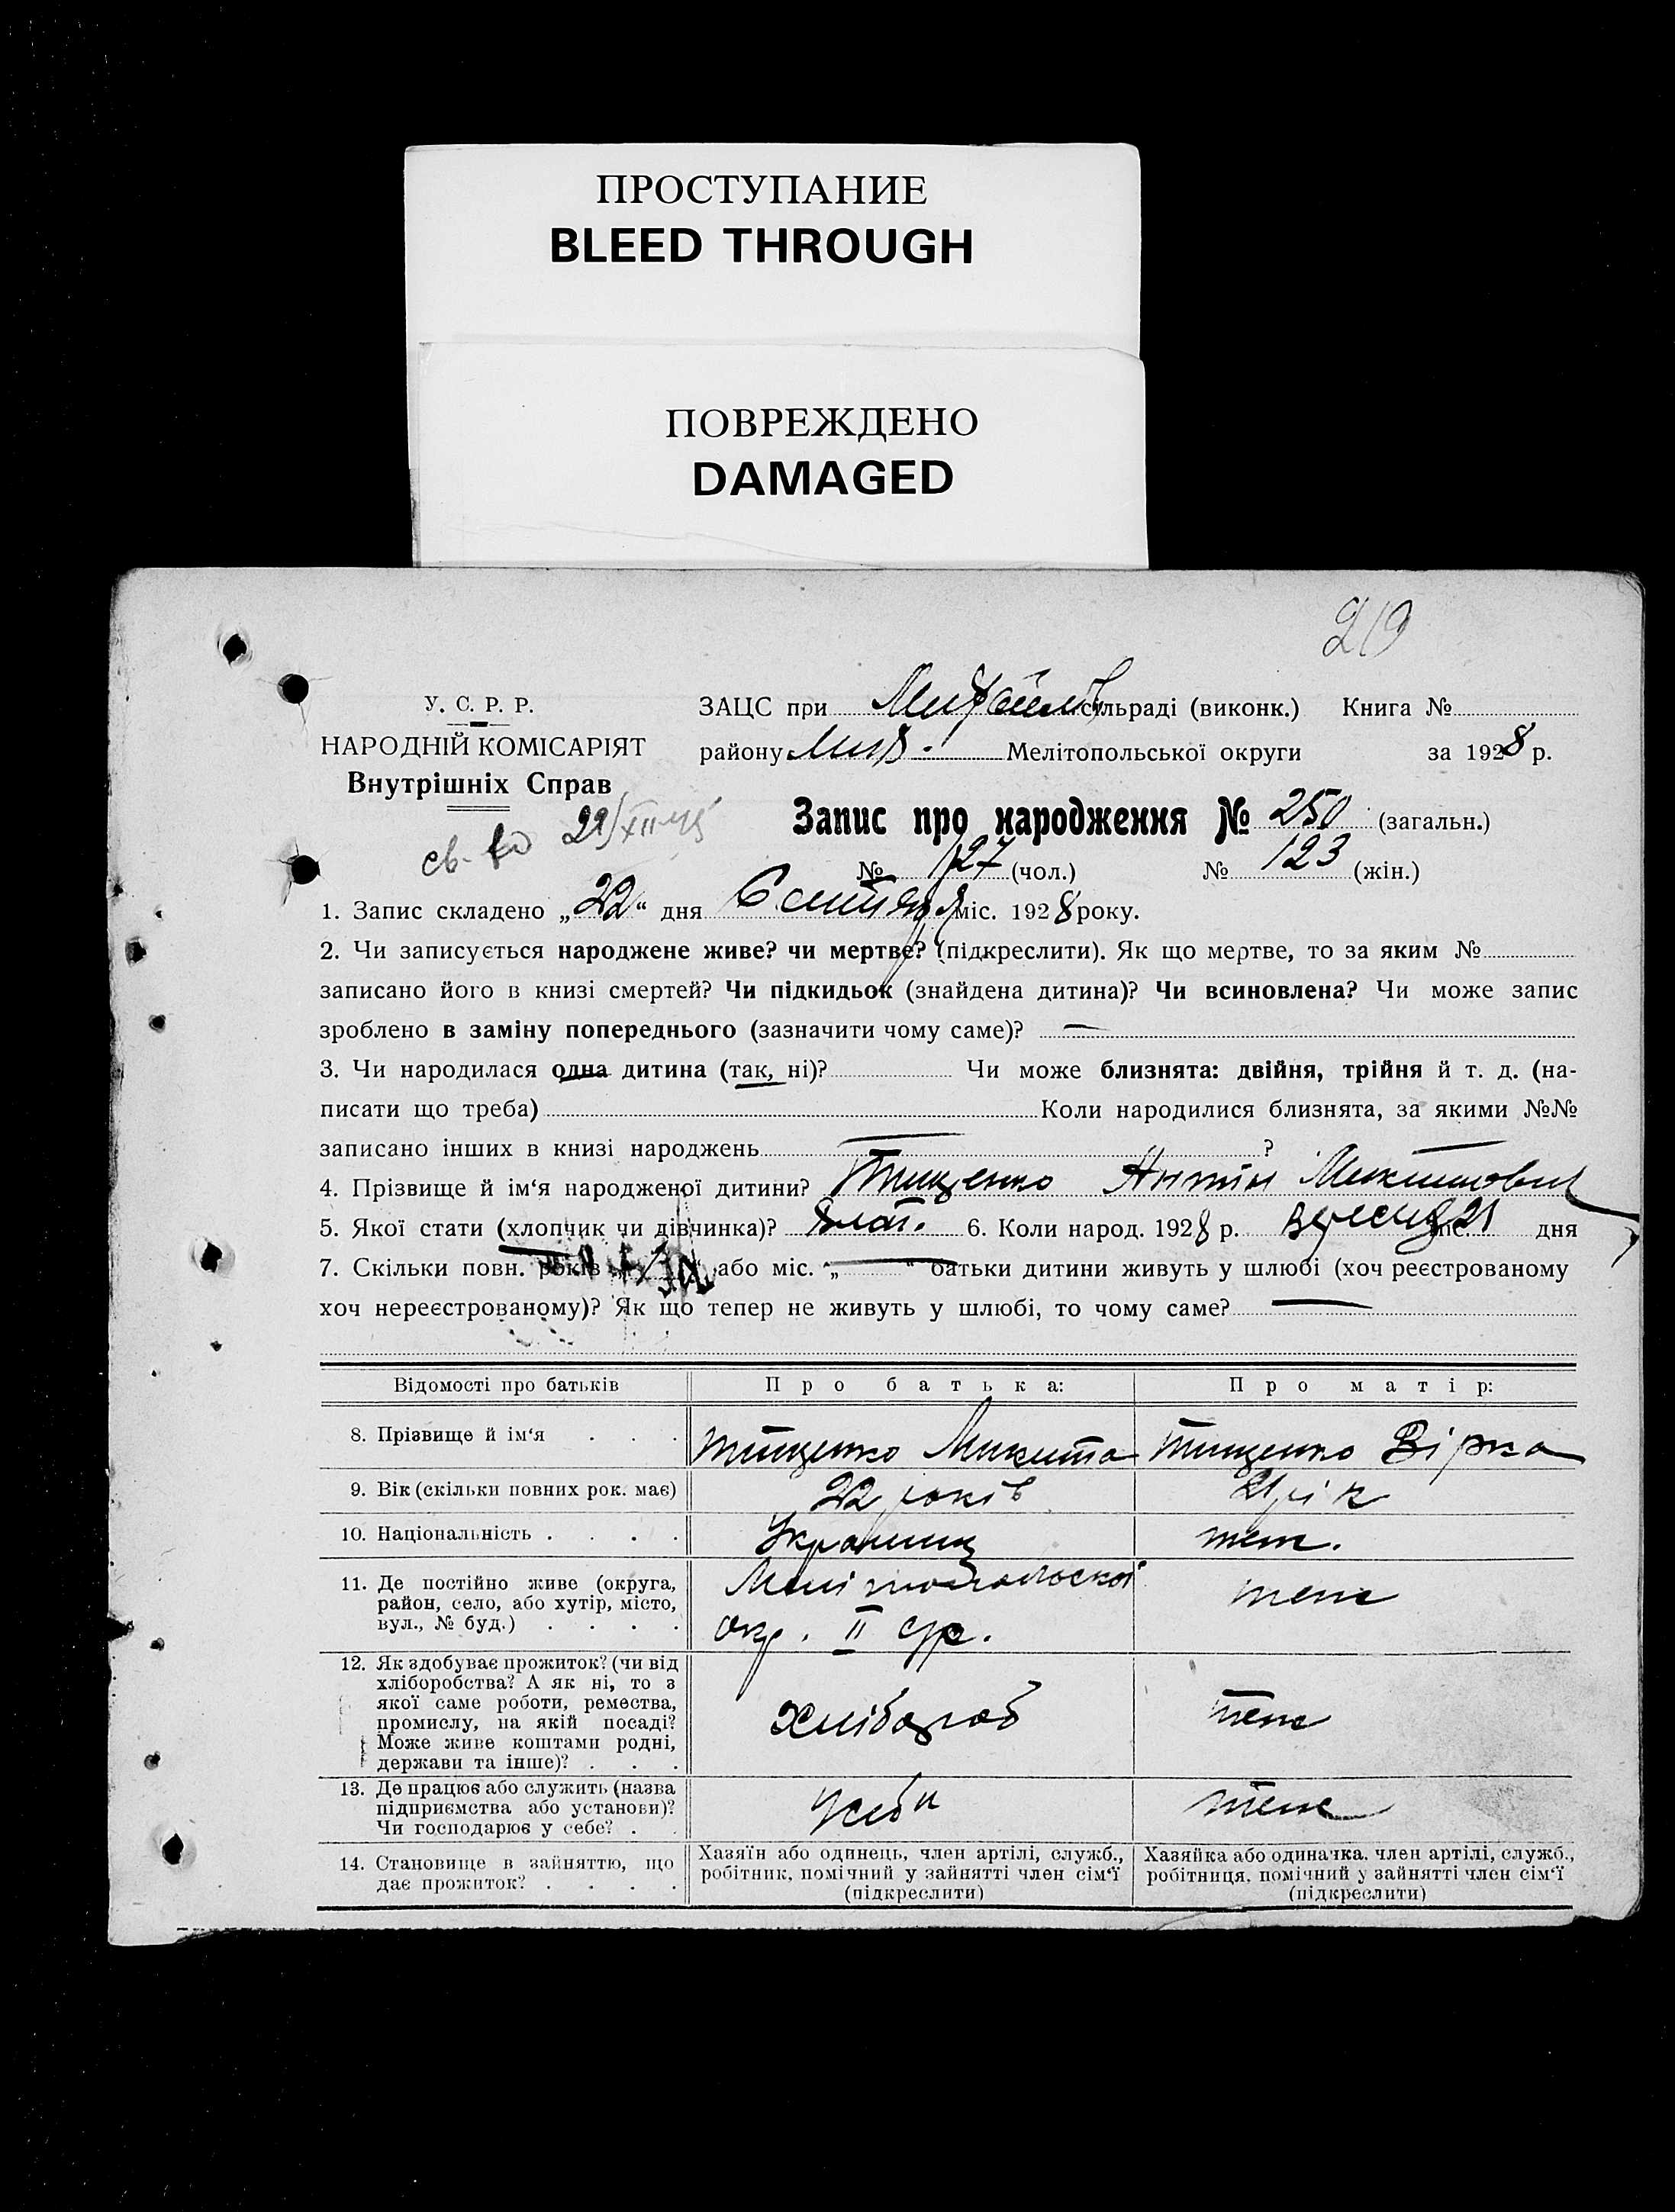 ПРОСТУПАНИЕ
BLEED THROUGH
ПОВРЕЖДЕНО
DAMAGED
219
У. С. Р. Р.
НАРОДНІЙ КОМІСАРІЯТ
Внутрішніх Справ
ЗАЦС при сільраді (виконк.) Книга №
району Мелітопольської округи за 1928 р.
Запис про народження № 250 (загальн.)
№ 127 (чол.) № 123 (жін.)
1. Запис складено „22“ дня міс. 1928 року.
2. Чи записується народжене живе? чи мертве? (підкреслити). Як що мертве, то за яким №
записано його в книзі смертей? Чи підкидьок (знайдена дитина)? Чи всиновлена? Чи може запис
зроблено в заміну попереднього (зазначити чому саме)? —
3. Чи народилася одна дитина (так, ні)? Чи може близнята: двійня, трійня й т. д. (на-
писати що треба) Коли народилися близнята, за якими №№
записано інших в книзі народжень ?
4. Прізвище й ім‘я народженої дитини? Тищенко Антін Микитович
5. Якої стати (хлопчик чи дівчинка)? 6. Коли народ. 1928 р. вересня 21 дня
7. Скільки повн. років або міс. „ — “ батьки дитини живуть у шлюбі (хоч реєстрованому
хоч нереєстрованому)? Як що тепер не живуть у шлюбі, то чому саме? —
Відомості про батьків Про батька: Про матір:
8. Прізвище й ім‘я . . . Тищенко Микита Тищенко Вірка
9. Вік (скільки повних рок. має) 22 років 21 рік
10. Національність . . . . Українец теж.
11. Де постійно живе (округа,
район, село, або хутір, місто,
вул., № буд.) . . . .
Мелітопольської
окр. II ср.
теж
12. Як здобуває прожиток? (чи від
хліборобства? А як ні, то з
якої саме роботи, ремества,
промислу, на якій посаді?
Може живе коштами родні,
держави та інше)? . . .
хлібороб
теж
13. Де працює або служить (назва
підприємства або установи)?
Чи господарює у себе? . .
у себи
теж
14. Становище в зайняттю, що
дає прожиток? . . . .
Хазяїн або одинець, член артілі, служб.,
робітник, помічний у зайнятті член сім‘ї
(підкреслити)
Хазяйка або одиначка. член артілі, служб.,
робітниця, помічний у зайнятті член сім‘ї
(підкреслити)